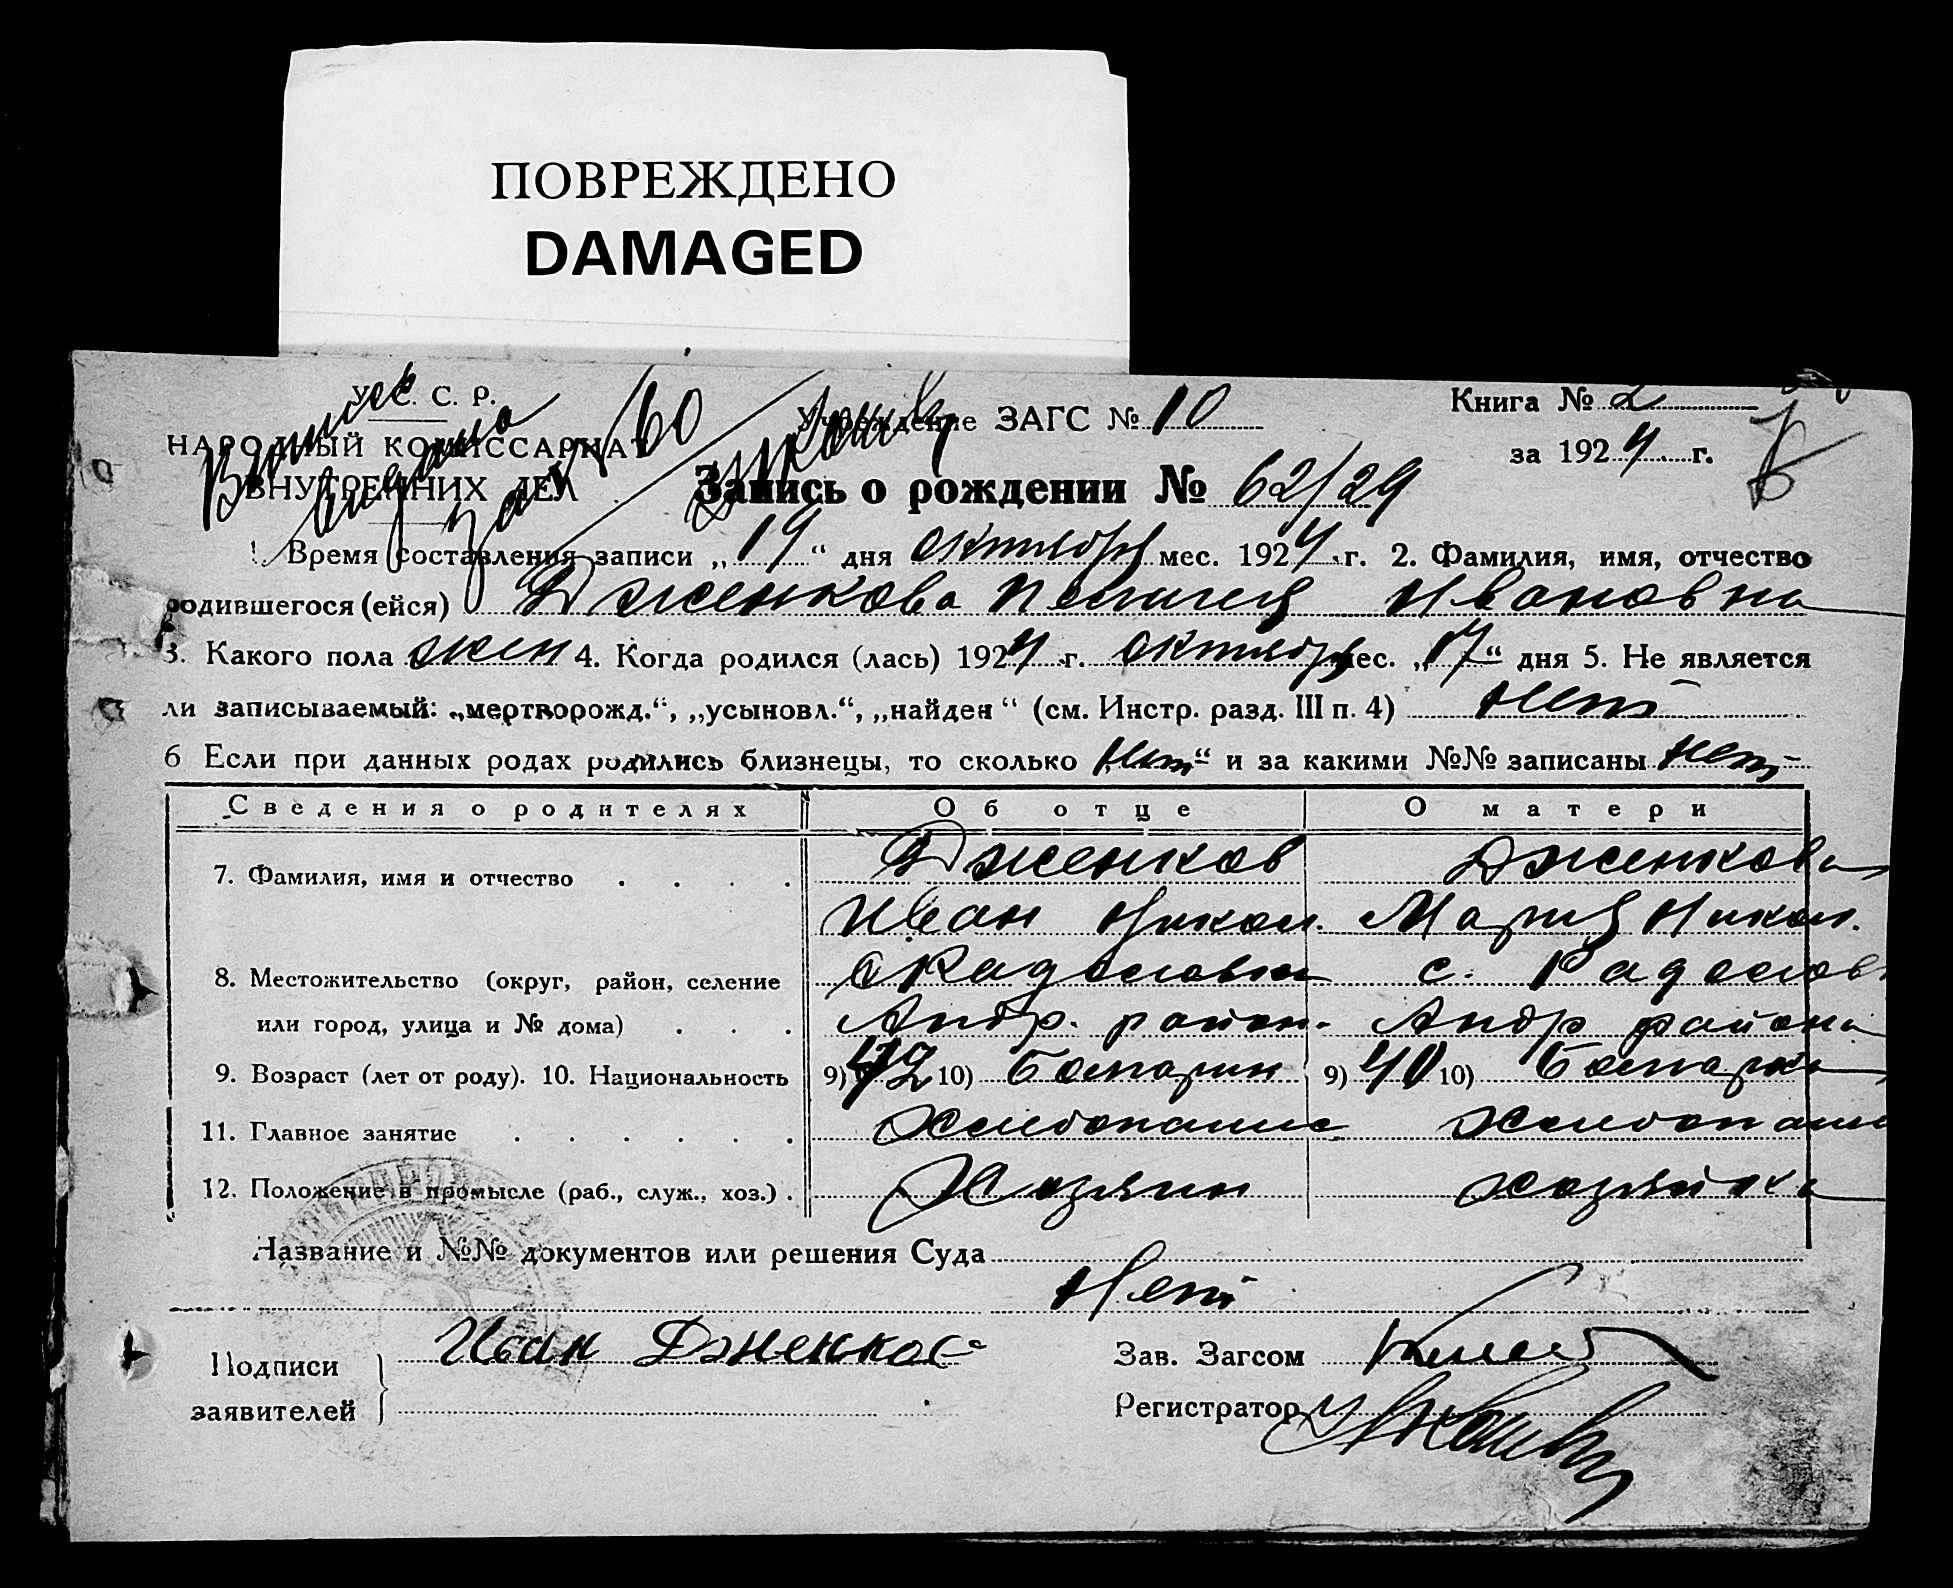 ПОВРЕЖДЕНО
DAMAGED
У. С. С. Р.
НАРОДНЫЙ КОМИССАРИАТ
ВНУТРЕННИХ ДЕЛ
Выписк
выдана
Учреждение ЗАГС № 10
Книга № 2
за 1924 г.
Запись о рождении № 62/29
1. Время составления записи „19“ дня октября мес. 1924 г. 2. Фамилия, имя, отчество
родившегося (ейся) Дженкова Ивановна
3. Какого пола жен 4. Когда родился (лась) 1924 г. октября мес. „17“ дня 5. Не является
ли записываемый: „мертворожд.“, „усыновл.“, „найден“ (см. Инстр. разд. III п. 4) нет
6 Если при данных родах родились близнецы, то сколько „нет“ и за какими №№ записаны нет
Сведения о родителях Об отце О матери
7. Фамилия, имя и отчество . . . . Дженков Дженкова
Иван Никол. Мария Никол.
8. Местожительство (округ, район, селение с. Радоловка с. Радолов
или город, улица и № дома) . . . Андр. район. Андр района
9. Возраст (лет от роду). 10. Национальность 9) 42 10) Болгарин 9) 40 10) Болгарка
11. Главное занятие . . . . . . Хлебопашец хлебопаш
12. Положение в промысле (раб., служ., хоз.) . Хозяин хозяйка
Название и №№ документов или решения Суда
Нет
Подписи Иван Дженков Зав. Загсом
заявителей Регистратор